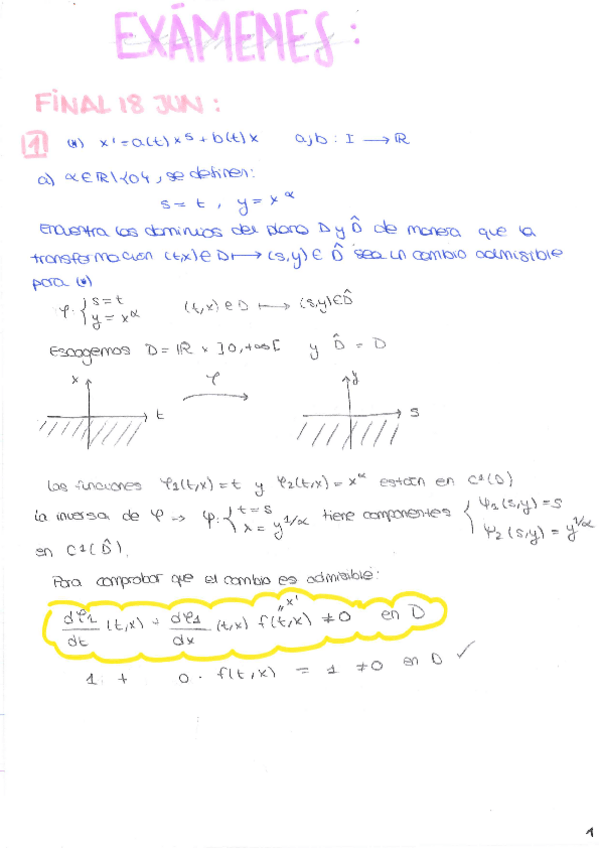 EXÁMENES:
FINAL 18 JUN:
1 (*) x' = a(t)x⁵ + b(t)x a,b: I → ℝ
a) α ∈ ℝ\{0}, se definen:
s = t , y = x^α
Encuentra los dominios del plano D y D̂ de manera que la
transformación (t,x) ∈ D ↦ (s,y) ∈ D̂ sea un cambio admisible
para (*)
φ: { s = t
y = x^α
(t,x) ∈ D ↦ (s,y) ∈ D̂
Escogemos D = ℝ × ]0,+∞[ y D̂ = D
x t φ y s
Las funciones φ₁(t,x) = t y φ₂(t,x) = x^α están en C¹(D)
La inversa de φ → φ: { t = s
x = y^1/α
tiene componentes { ψ₁(s,y) = s
ψ₂(s,y) = y^1/α
en C¹(D̂).
Para comprobar que el cambio es admisible:
dφ₁/dt (t,x) + dφ₁/dx (t,x) f(t,x) ≠ 0 en D
" x'
1 + 0 · f(t,x) = 1 ≠ 0 en D ✓
1